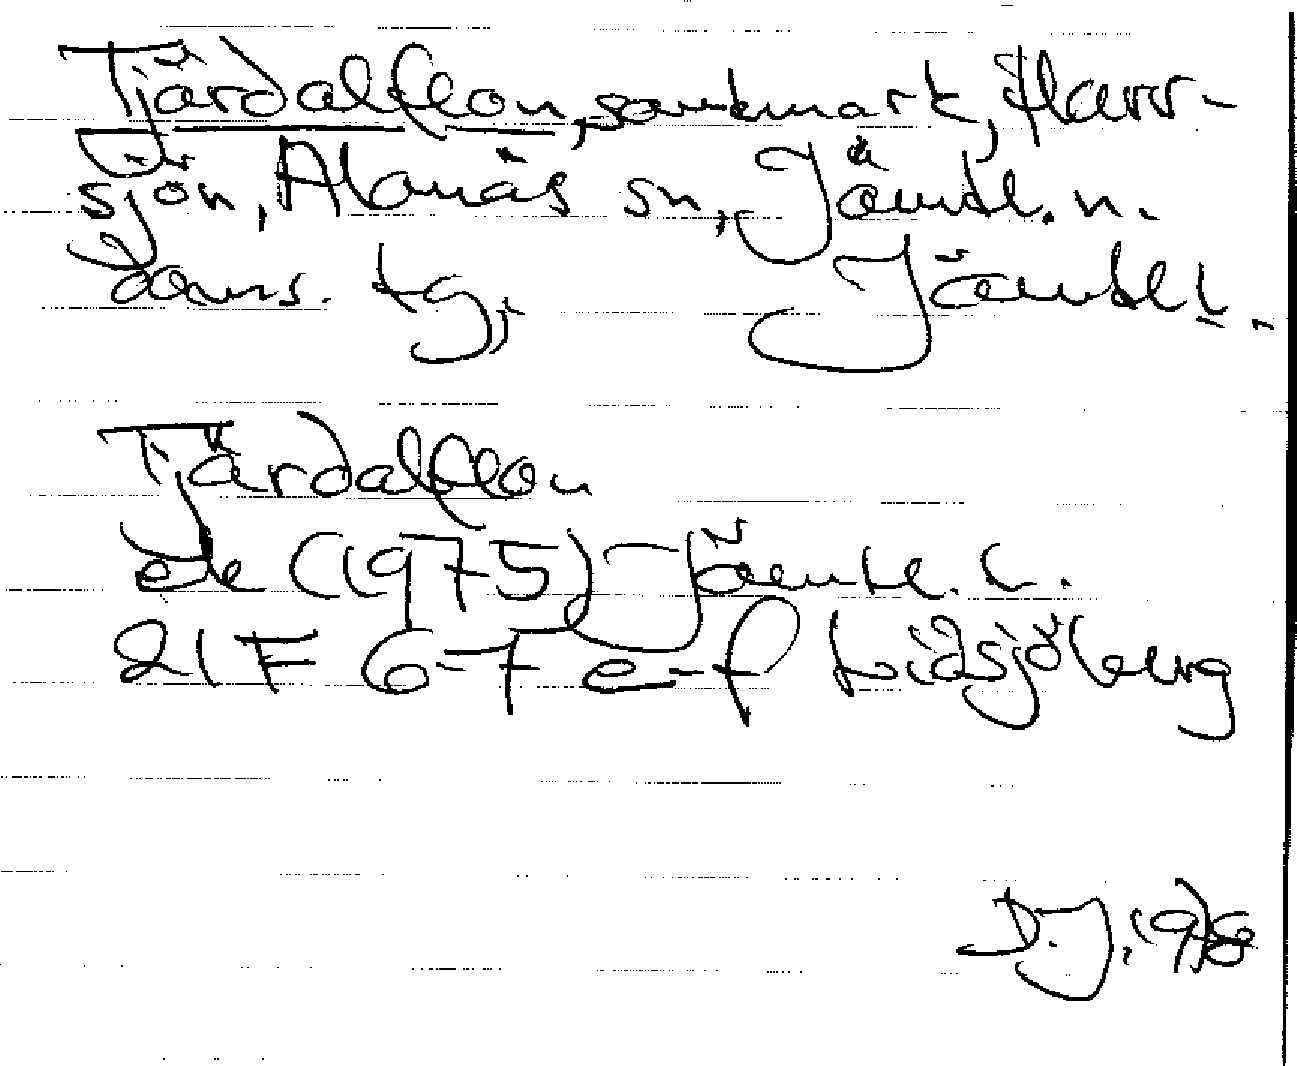 Tjärdalflon, sankmark, Harr-
sjön, Alanäs sn, Jämtl. n.
doms. tg, Jämtl l.
Tjärdalflon
ek (1975) Jämtl. l.
21F 6-7 e-f Lidsjöberg
D.J. 1978